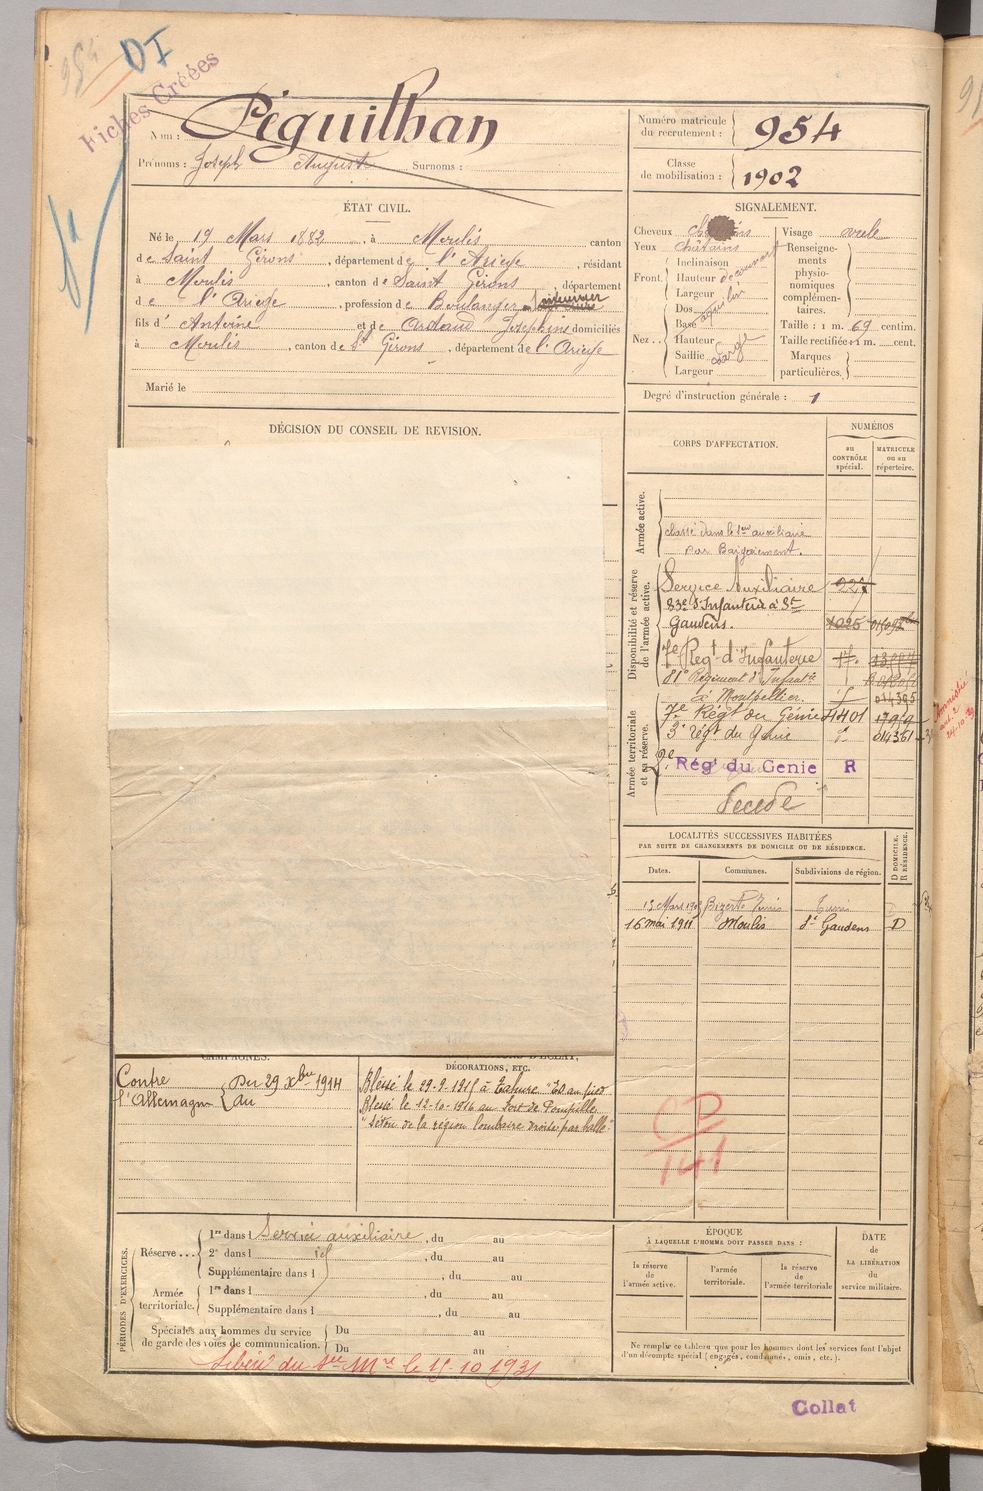 954
DI
Fiches Créées
Nom : Péguilhan
Prénoms : Joseph August Surnoms :
Numéro matricule du recrutement : 954
Classe de mobilisation : 1902
ÉTAT CIVIL.
Né le 19 Mars 1882, à Moulis canton
de Saint Girons, département de l'Ariège, résidant
à Moulis, canton de Saint Girons, département
de l'Ariège, profession de Boulanger
fils d' Antoine et de Ardaud Josephine domiciliés
à Moulis, canton de St Girons, département de l'Ariège
Marié le
SIGNALEMENT.
Cheveux châtains
Yeux châtains
Front. Inclinaison
Hauteur découvert
Largeur
Nez.. Dos
Base aquilin
Hauteur
Saillie large
Largeur
Visage ovale
Renseignements physionomiques complémentaires.
Taille : 1 m. 69 centim.
Taille rectifiée : 1 m. cent.
Marques particulières.
Degré d'instruction générale : 1
DÉCISION DU CONSEIL DE REVISION.
CORPS D'AFFECTATION.
NUMÉROS
au CONTRÔLE spécial.
MATRICULE ou au répertoire.
Armée active.
classé dans le s.ce auxiliaire
par Bégaiement.
Disponibilité et réserve de l'armée active.
Service Auxiliaire 227
83e d'Infanterie à St
Gaudens. 1025
7e Regt d'Infanterie
81e Régiment d'Infantie
à Montpellier. 014395
Armée territoriale et sa réserve.
7e Régt du Génie 4401
3e régt du Génie 014361
2e Rég' du Genie R
Décédé
Amnistié
LOCALITÉS SUCCESSIVES HABITÉES
PAR SUITE DE CHANGEMENTS DE DOMICILE OU DE RÉSIDENCE.
Dates. Communes. Subdivisions de région. D DOMICILE. R RÉSIDENCE.
13 Mars 1903 Bizerte Tunis Tunis
16 mai 1911 Moulis St Gaudens D
CAMPAGNES.
DÉCORATIONS, ETC.
Contre l'Allemagne { Du 29 Xbre 1914
au
Blessé le 29-9-1915 à Tahure "Ed au pied
Blessé le 12-10-1916 au Fort de Pompelle
"Séton de la région lombaire droite par balle"
CD
141
PÉRIODES D'EXERCICES.
Réserve... 1re dans l Service auxiliaire, du au
2e dans l id, du au
Supplémentaire dans l , du au
Armée territoriale. 1re dans l , du au
Supplémentaire dans l , du au
Spéciales aux hommes du service de garde des voies de communication. Du au
Du au
Libéré du sce Mre le 15-10 1931
ÉPOQUE
À LAQUELLE L'HOMME DOIT PASSER DANS :
la réserve de l'armée active.
l'armée territoriale.
la réserve de l'armée territoriale
DATE DE LA LIBÉRATION du service militaire.
Ne remplir ce tableau que pour les hommes dont les services font l'objet
d'un décompte spécial (engagés, condamnés, omis, etc.).
Collat